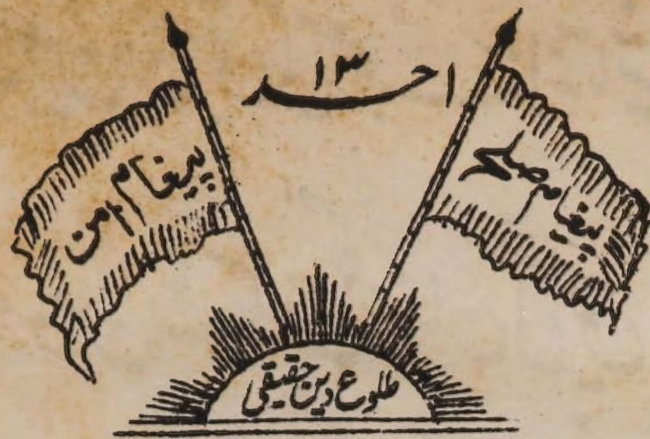 ۱۳
احد
پیغام صلح
پیغام امن
طلوع دین حقیقی